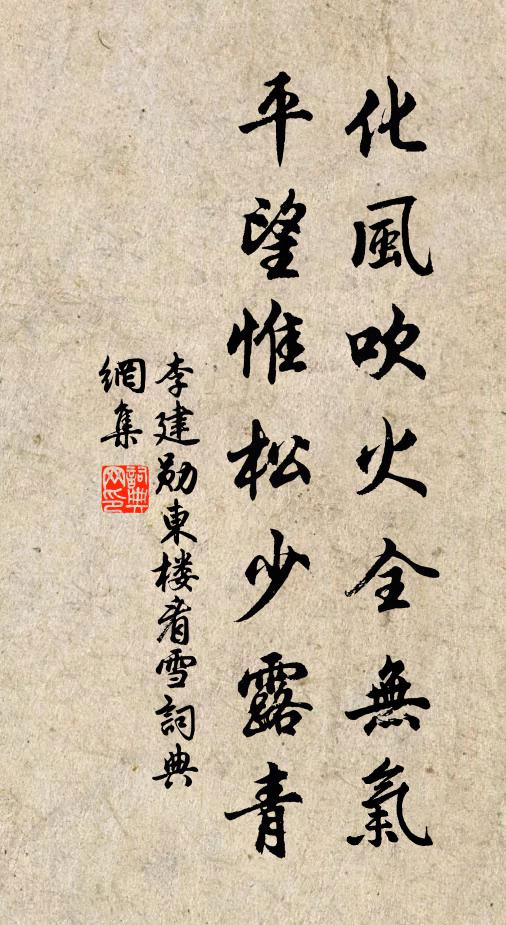 化風吹火全無氣
平望惟松少露青
李建勛東楼看雪詞典
網集
詞典
网印